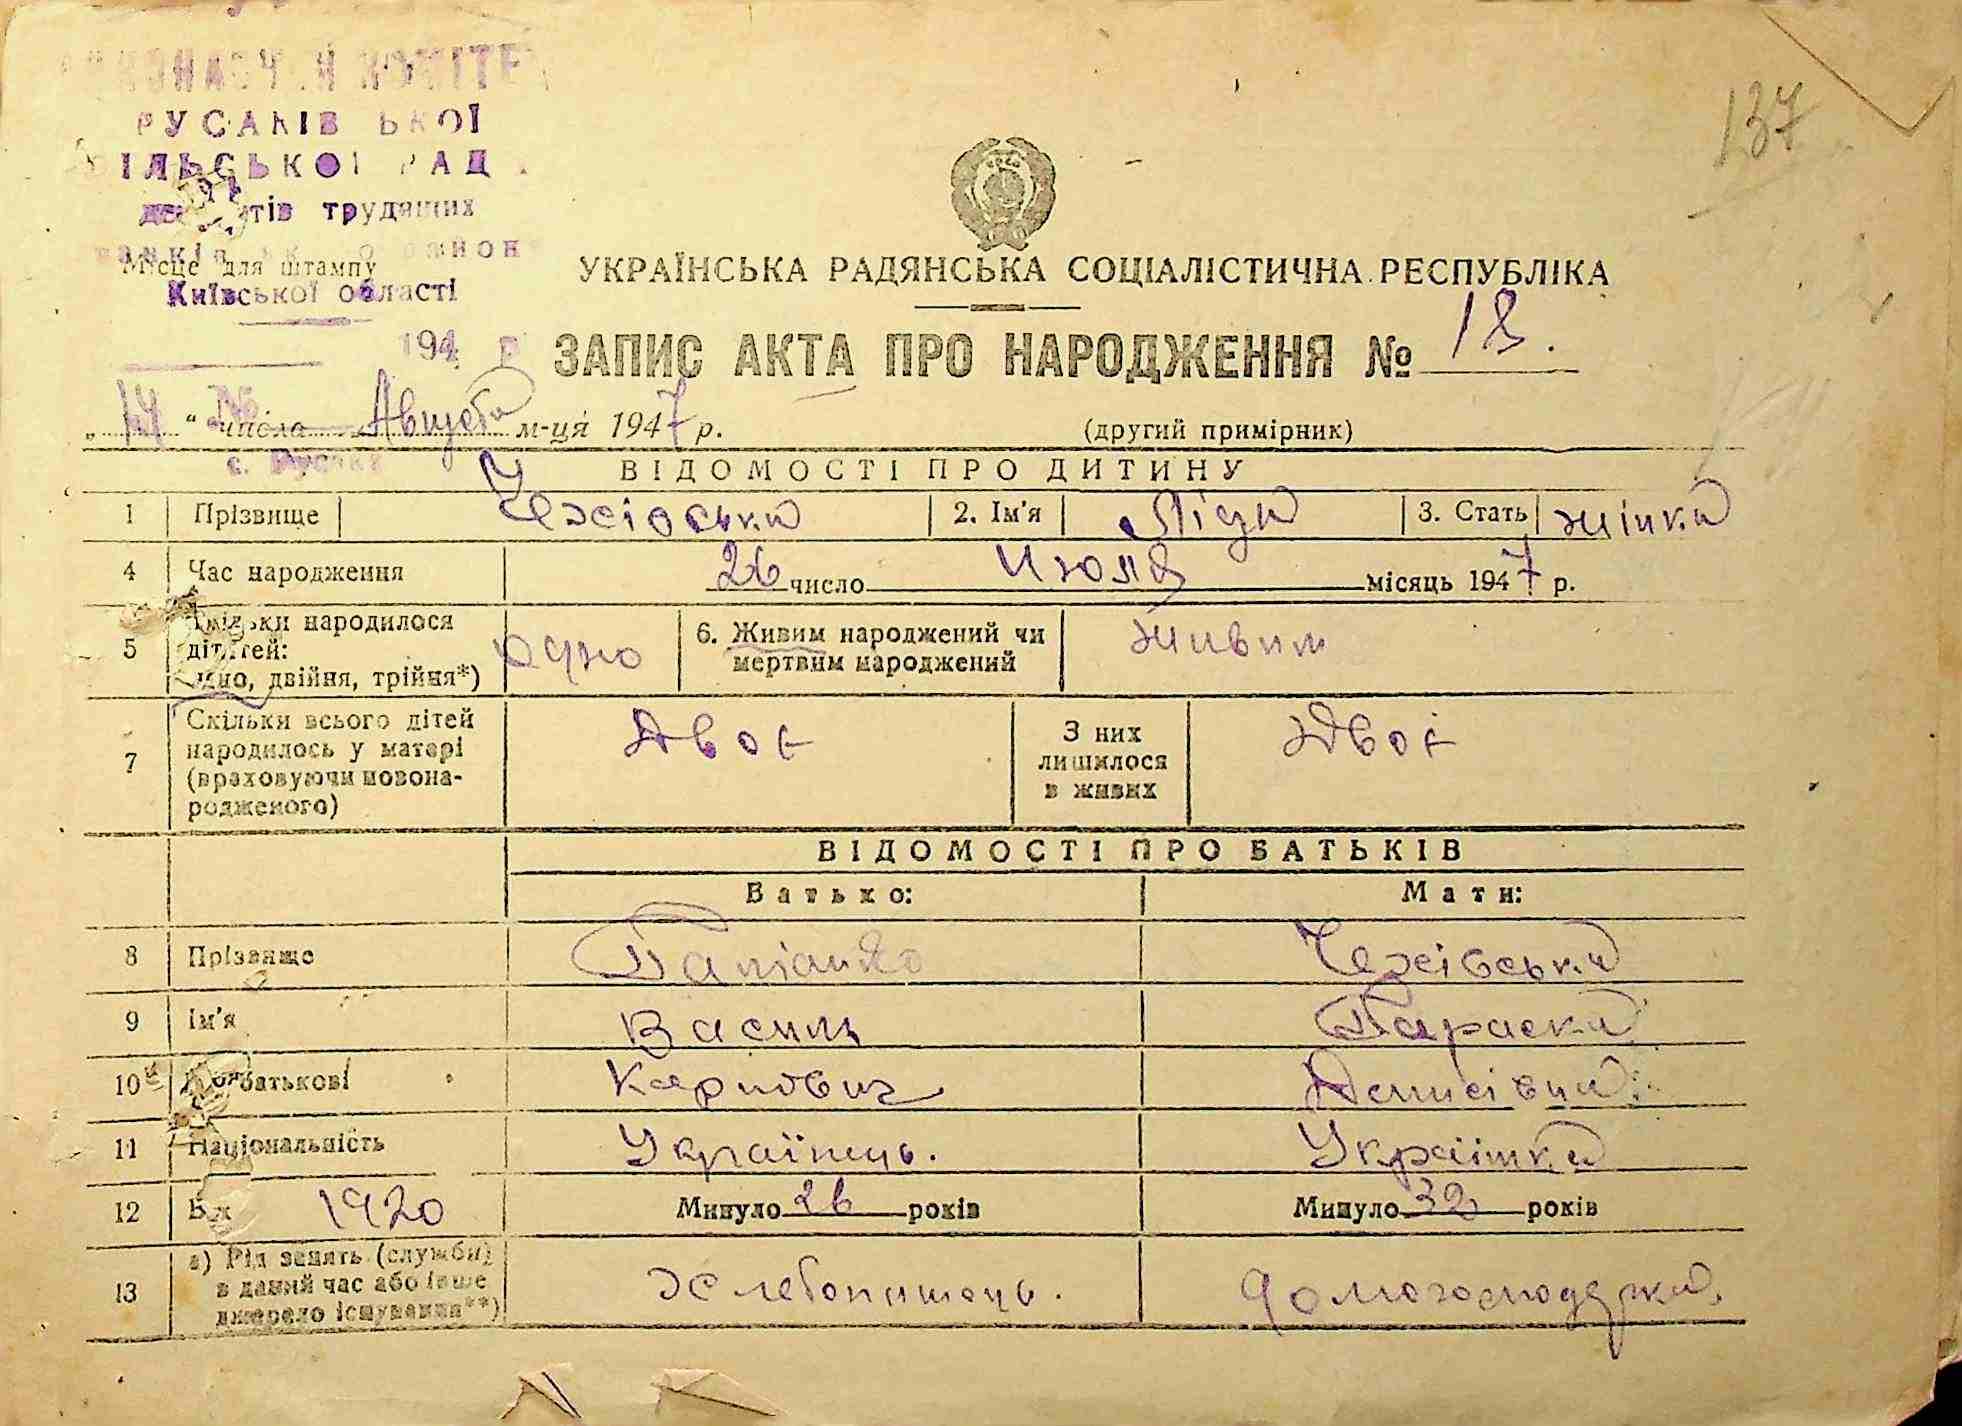 137
КОМІТЕ
РУСАКІВ ЬКОЇ
ІЛЬСЬКОЇ РАД
де тів трудящих
Місце для штампу
Київської області
УКРАЇНСЬКА РАДЯНСЬКА СОЦІАЛІСТИЧНА РЕСПУБЛІКА
194 р
ЗАПИС АКТА ПРО НАРОДЖЕННЯ № 18.
„14“ числа Августа м-ця 1947 р.
(другий примірник)
ВІДОМОСТІ ПРО ДИТИНУ
1 Прізвище Чехівська 2. Ім'я Ліда 3. Стать жінка
4 Час народження 26 число Июля місяць 1947 р.
5 Скільки народилося дітей: одно, двійня, трійня*) одно 6. Живим народжений чи мертвим народжений живим
7 Скільки всього дітей народилось у матері (враховуючи новона-родженого) Двоє З них лишилося в живих Двоє
ВІДОМОСТІ ПРО БАТЬКІВ
Батько: Мати:
8 Прізвище Чехівська
9 Ім'я Василь Параска
10 По батькові Карпович Денисівна
11 Національність Українець. Українка
12 Вік 1920 Минуло 26 років Минуло 32 років
13 а) Рід занять (служби) в даний час або інше джерело існування**) Хлебопашець. домогосподарка.